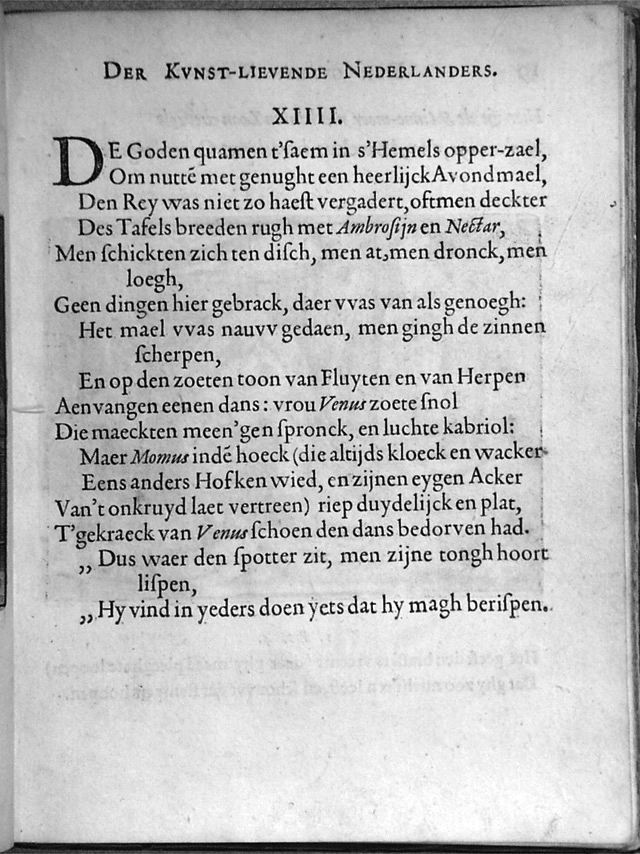 DER KVNST-LIEVENDE NEDERLANDERS.
XIIII.
DE Goden quamen t'ſaem in s'Hemels opper-zael,
Om nuttē met genught een heerlijck Avondmael,
Den Rey was niet zo haeſt vergadert, oftmen deckter
Des Tafels breeden rugh met Ambroſijn en Nectar,
Men ſchickten zich ten diſch, men at, men dronck, men
loegh,
Geen dingen hier gebrack, daer vvas van als genoegh:
Het mael vvas nauvv gedaen, men gingh de zinnen
ſcherpen,
En op den zoeten toon van Fluyten en van Herpen
Aenvangen eenen dans: vrou Venus zoete ſnol
Die maeckten meen'gen ſpronck, en luchte kabriol:
Maer Momus indē hoeck (die altijds kloeck en wacker
Eens anders Hofken wied, en zijnen eygen Acker
Van't onkruyd laet vertreen) riep duydelijck en plat,
T'gekraeck van Venus ſchoen den dans bedorven had.
,, Dus waer den ſpotter zit, men zijne tongh hoort
liſpen,
,, Hy vind in yeders doen yets dat hy magh beriſpen.